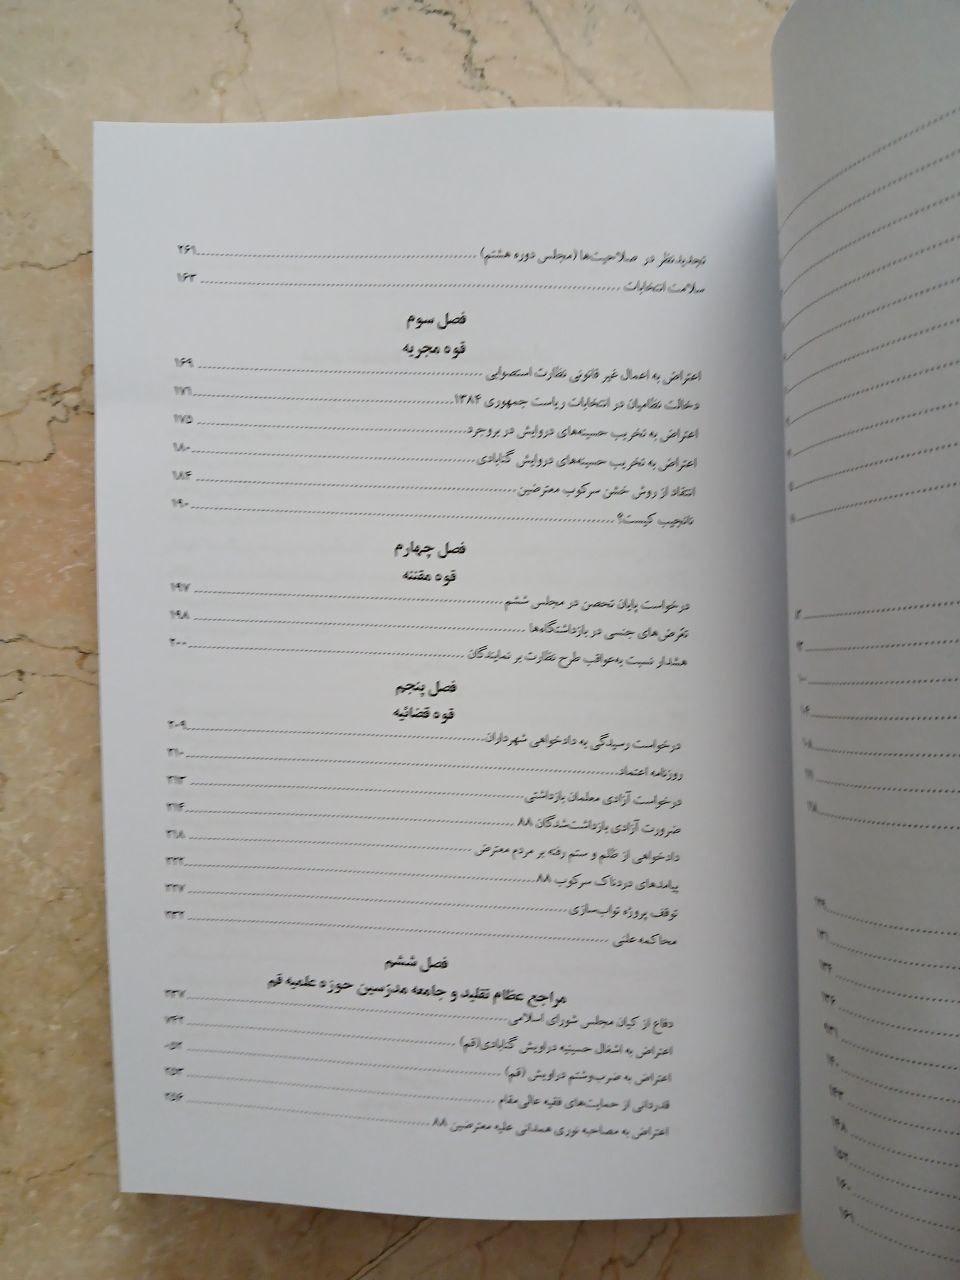 تجدیدنظر در صلاحیت‌ها (مجلس دوره هشتم) ۲۶۱
سلامت انتخابات ۱۶۳
فصل سوم
قوه مجریه
اعتراض به اعمال غیر قانونی نظارت استصوابی ۱۶۹
دخالت نظامیان در انتخابات ریاست جمهوری ۱۳۸۴ ۱۷۱
اعتراض به تخریب حسینه‌های دروایش در بروجرد ۱۷۵
اعتراض به تخریب حسینه‌های دروایش گنابادی ۱۸۰
انتقاد از روش خشن سرکوب معترضین ۱۸۴
نانجیب کیست؟ ۱۹۰
فصل چهارم
قوه مقننه
درخواست پایان تحصن در مجلس ششم ۱۹۷
تعرض‌های جنسی در بازداشتگاه‌ها ۱۹۸
هشدار نسبت به‌عواقب طرح نظارت بر نمایندگان ۲۰۰
فصل پنجم
قوه قضائیه
درخواست رسیدگی به دادخواهی شهرداران ۲۰۹
روزنامه اعتماد ۲۱۰
درخواست آزادی معلمان بازداشتی ۲۱۳
ضرورت آزادی بازداشت‌شدگان ۸۸ ۲۱۴
دادخواهی از ظلم و ستم رفته بر مردم معترض ۲۱۸
پیامدهای دردناک سرکوب ۸۸ ۲۲۲
توقف پروژه تواب‌سازی ۲۲۷
محاکمه علنی ۲۳۲
فصل ششم
مراجع عظام تقلید و جامعه مدرسین حوزه علمیه قم
دفاع از کیان مجلس شورای اسلامی ۲۳۷
اعتراض به اشغال حسینیه دراویش گنابادی(قم) ۷۴۲
اعتراض به ضرب‌وشتم دراویش (قم) ۰۵۲
قدردانی از حمایت‌های فقیه عالی‌مقام ۲۵۳
اعتراض به مصاحبه نوری همدانی علیه معترضین ۸۸ ۲۵۶
۹۲
۱۰۰
۱۰۴
۱۰۸
۱۱۱
۱۱۸
۱۲۹
۱۳۱
۱۳۴
۱۳۶
۹۳۱
۱۴۰
۱۴۳
۱۴۸
۱۵۲
۱۶۰
۱۶۱